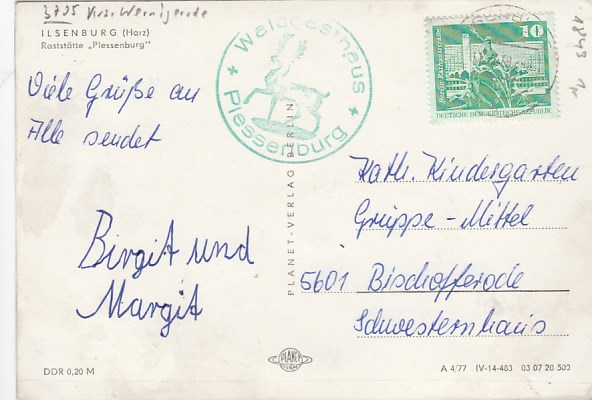 3705 Krs. Wernigerode
ILSENBURG (Harz)
Raststätte „Plessenburg"
Viele Grüße an
Alle sendet
Birgit und
Margit
Waldgasthaus
Plessenburg
PLANET-VERLAG BERLIN
10
DEUTSCHE DEMOKRATISCHE REPUBLIK
1843
Kath. Kindergarten
Gruppe - Mittel
5601 Bischofferode
Schwesternhaus
DDR 0,20 M
PLANET
A 4/77 IV-14-483 03 07 20 500